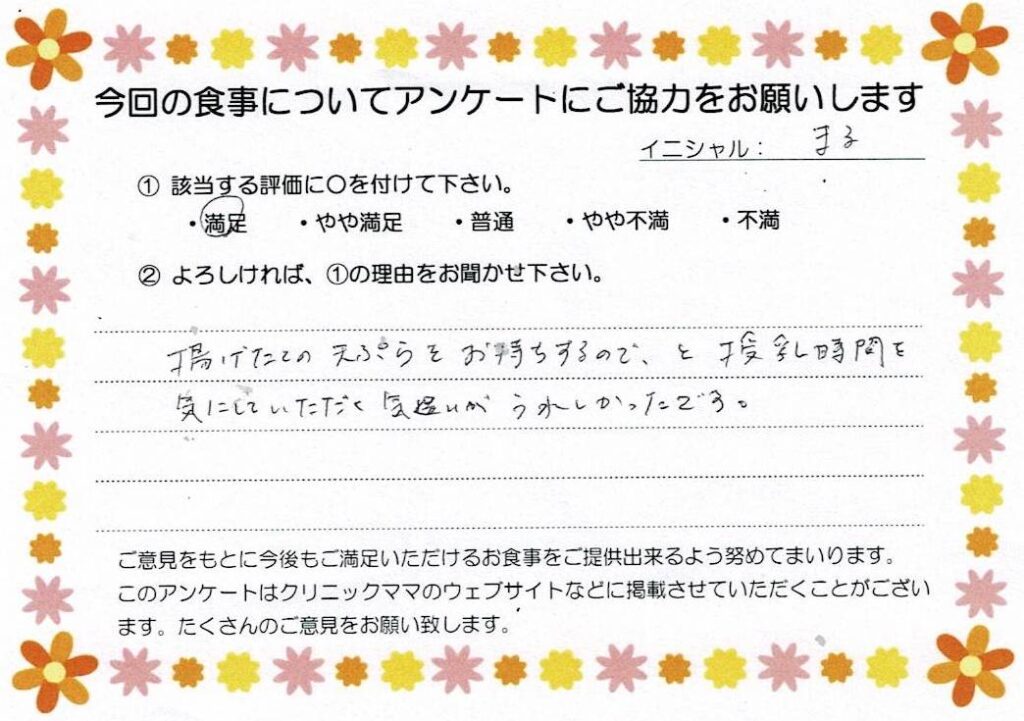 今回の食事についてアンケートにご協力をお願いします
イニシャル： まる
① 該当する評価に〇を付けて下さい。
・満足 ・やや満足 ・普通 ・やや不満 ・不満
② よろしければ、①の理由をお聞かせ下さい。
揚げたての天ぷらをお持ちするので、と授乳時間を
気にしていただく気遣いがうれしかったです。
ご意見をもとに今後もご満足いただけるお食事をご提供出来るよう努めてまいります。
このアンケートはクリニックママのウェブサイトなどに掲載させていただくことがござい
ます。たくさんのご意見をお願い致します。